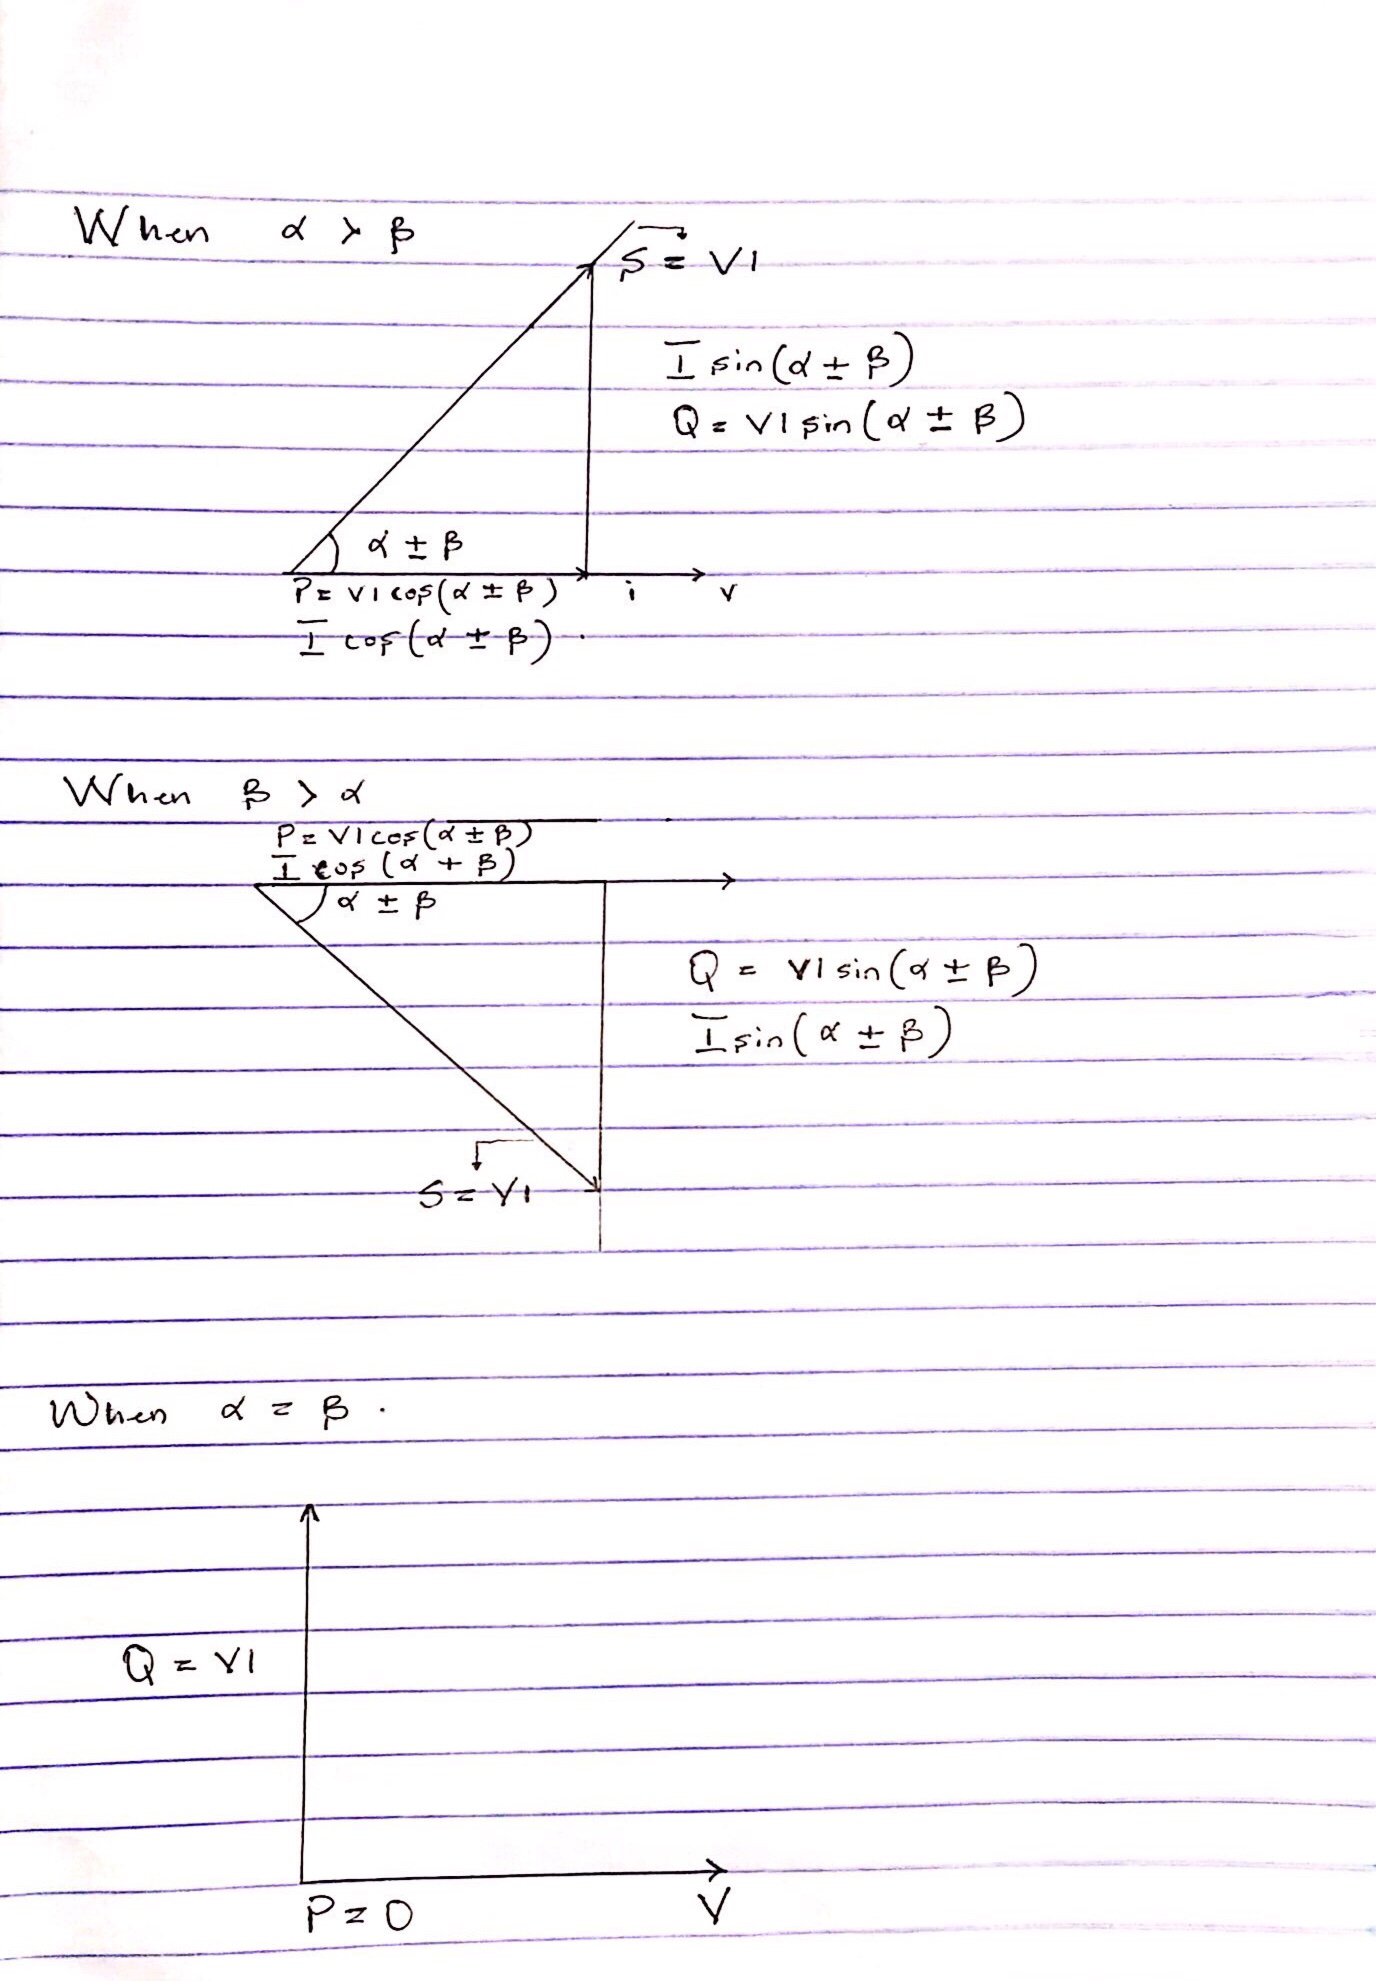 When α > β
S = VI
I sin(α ± β)
Q = VI sin(α ± β)
α ± β
P = VI cos(α ± β) i v
I cos(α ± β).
When β > α
P = VI cos(α ± β)
I cos (α + β)
α ± β
Q = VI sin(α ± β)
I sin(α ± β)
S = VI
When α = β.
Q = VI
P = 0 V